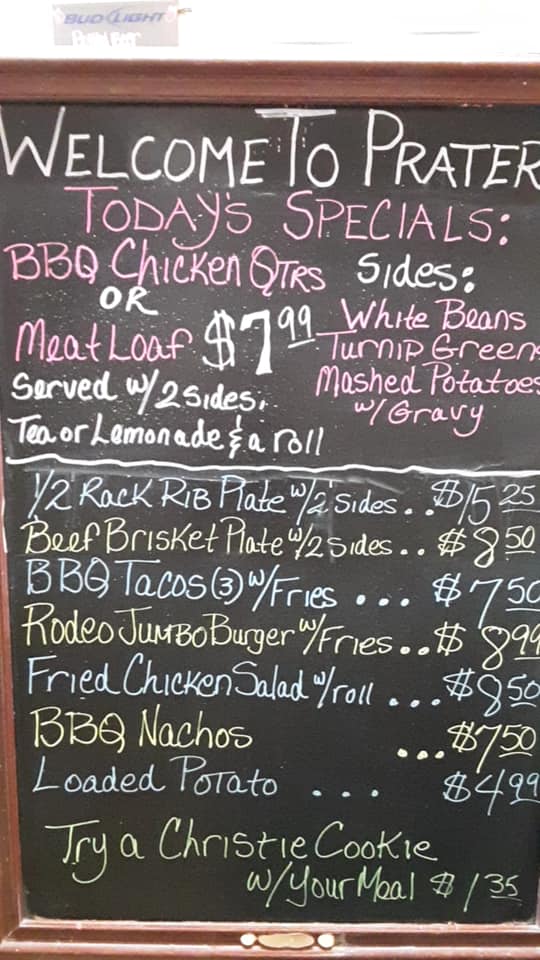 BUD LIGHT
WELCOME TO PRATER
TODAY'S SPECIALS:
BBQ Chicken QTRS
OR
Meat Loaf $7.99
Served w/ 2 Sides,
Tea or Lemonade & a roll
Sides:
White Beans
Turnip Green
Mashed Potatoes
w/ Gravy
1/2 Rack Rib Plate w/2 sides.. $15.25
Beef Brisket Plate w/2 sides.. $8.50
BBQ Tacos (3) w/Fries ... $7.50
Rodeo Jumbo Burger w/Fries.. $8.99
Fried Chicken Salad w/roll ... $8.50
BBQ Nachos ... $7.50
Loaded Potato ... $4.99
Try a Christie Cookie
w/Your Meal $1.35